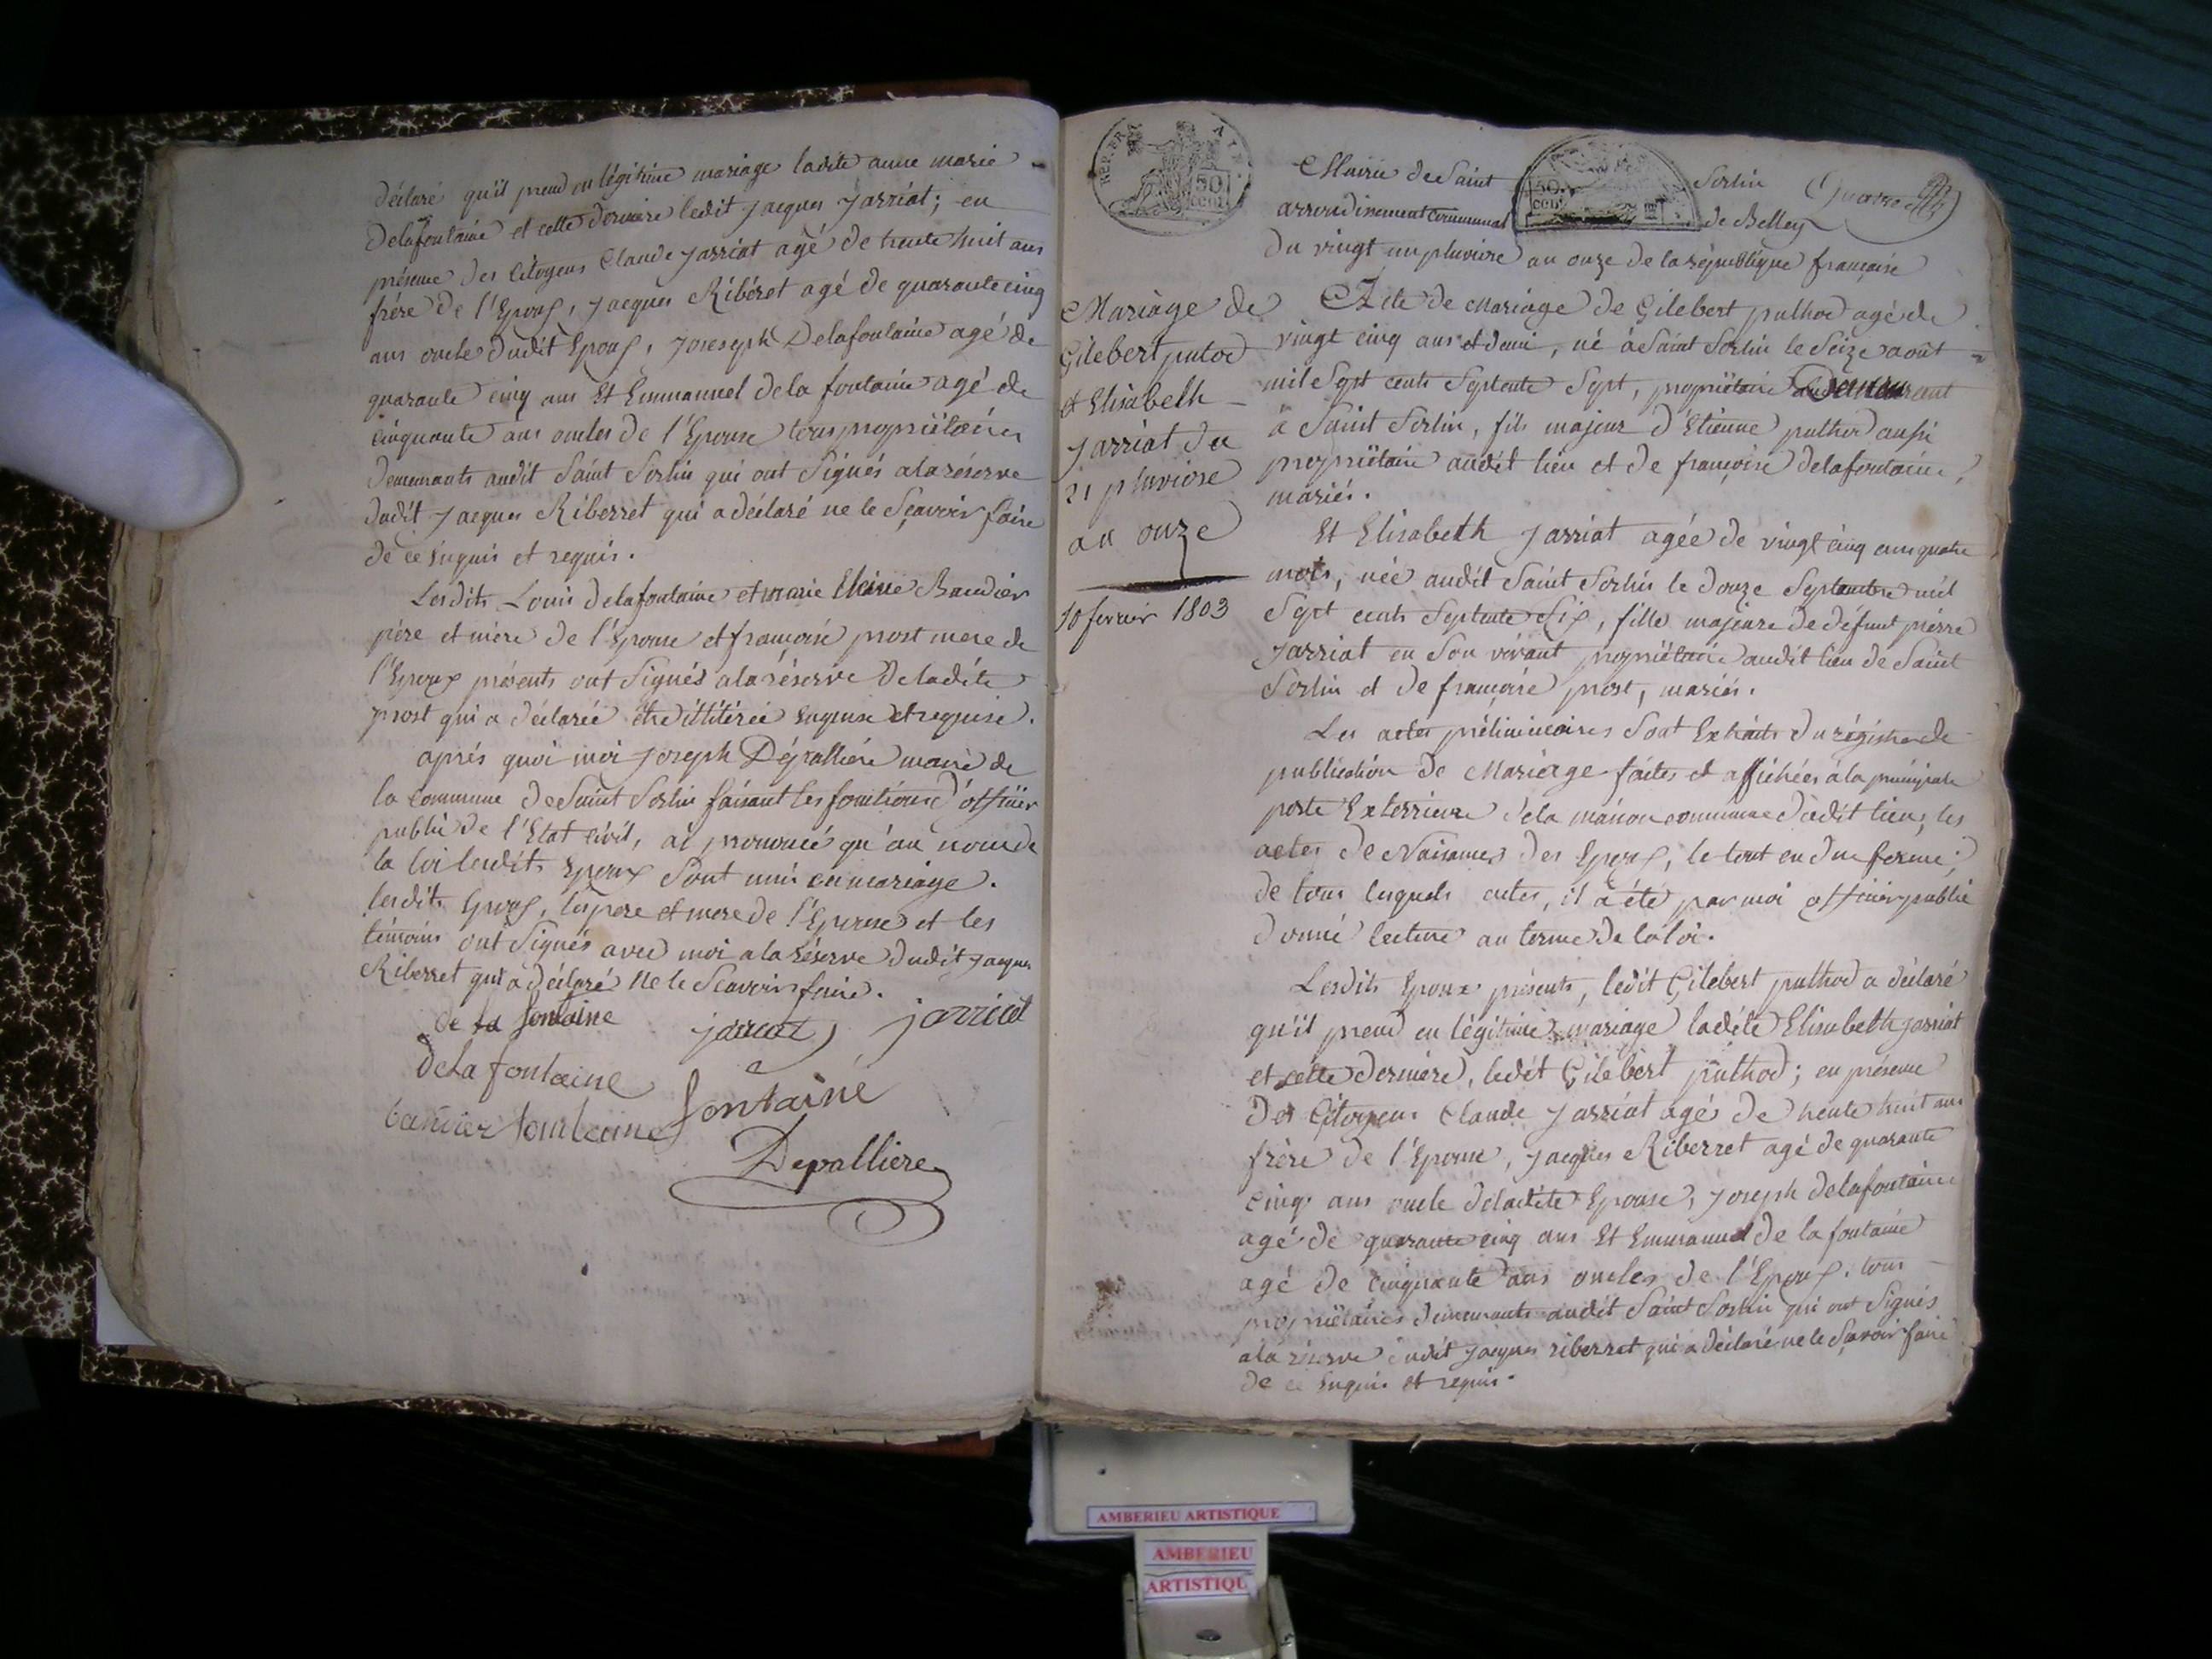 déclaré qu'il prend en légitime mariage ladite anne marie
Delafontaine et cette derniere ledit jacques jarriat; en
présence des Citoyens Claude jarriat agé de trente huit ans
frére de l'Epoux, jacques Ribéret agé de quarante cinq
ans oncle dudit Epoux, joseseph Delafontaine agé de
quarante cinq ans Et Emmanuel dela fontaine agé de
cinquante ans oncles de l'Epouse tous propriétaires
demeurants audit Saint Sorlin qui ont Signés ala réserve
dudit jacques Riberret qui a déclaré ne le Sçavoir faire
de ce Enquis et requis.
Lesdits Louis delafontaine et marie Baudier
père et mère de l'Epouse et françoise prost mere de
l'Epoux présents ont Signés ala réserve deladite
prost qui a déclarée être illitérée Enquise et requise.
aprés quoi moi joseph Dépallière maire de
la commune de Saint Sorlin faisant les fonctions d'officier
public de l'Etat civil, ai prononcé qu'au nom de
la loi lesdits Epoux Sont unis en mariage.
lesdits Epoux, les pere et mere de l'Epouse et les
témoins ont Signés avec moi ala réserve dudit jacques
Riberret qui a déclaré ne le Scavoir faire.
de la fontaine jarriat jarriat
dela fontaine fontaine
Depalliere
REP. FRA
50
CENT
Mairie de Saint Sorlin
50
CEN
arrondissement communal de Belley
du vingt un pluviose an onze de la république française
Mariage de
Gilebert putod
et Elisabelh
jarriat du
21 pluviose
an onze
10 fevrier 1803
Acte de Mariage de Gilebert puthod agé de
vingt cinq ans et demi, né à Saint Sorlin le Seize août
mil Sept cents Septente Sept, propriétaire
à Saint Sorlin, fils majeur d'Etienne puthod aussi
propriétaire audit lieu et de françoise delafontaine,
mariés.
Et Elisabeth jarriat agée de vingt cinq ans quatre
mois, née audit Saint Sorlin le douze Septembre mil
Sept cents Septente Six, fille majeure de défunt piérre
jarriat en Son vivant propriétaire audit lieu de Saint
Sorlin et de françoise prost, mariés.
Les actes préliminaires Sont Extraits du régistre de
publication de Mariage faites et affichées à la principale
porte Exterrieure dela maison commune dudit lieu, les
actes de Naissances des Epoux, le tout en due forme;
de tous lesquels actes, il a été par moi officier public
donné lecture au terme de la loi.
Lesdits Epoux présents, ledit Gilebert puthod a déclaré
qu'il prend en légitime mariage ladite Elisabeth jarriat
et cette derniere, ledit Gilebert puthod; en présence
des Citoyens Claude jarriat agé de trente huit ans
frère de l'Epouse, jacques Riberret agé de quarante
cinq ans oncle deladite Epouse, joseph delafontaine
agé de quarante cinq ans Et Emmanuel de la fontaine
agé de cinquante ans oncles de l'Epoux. tous
propriétaires demeurants audit Saint Sorlin qui ont Signés
ala réserve dudit jacques riberret qui a déclaré ne le Savoir faire
de ce Enquis et requis.
AMBERIEU ARTISTIQUE
AMBERIEU
ARTISTIQU